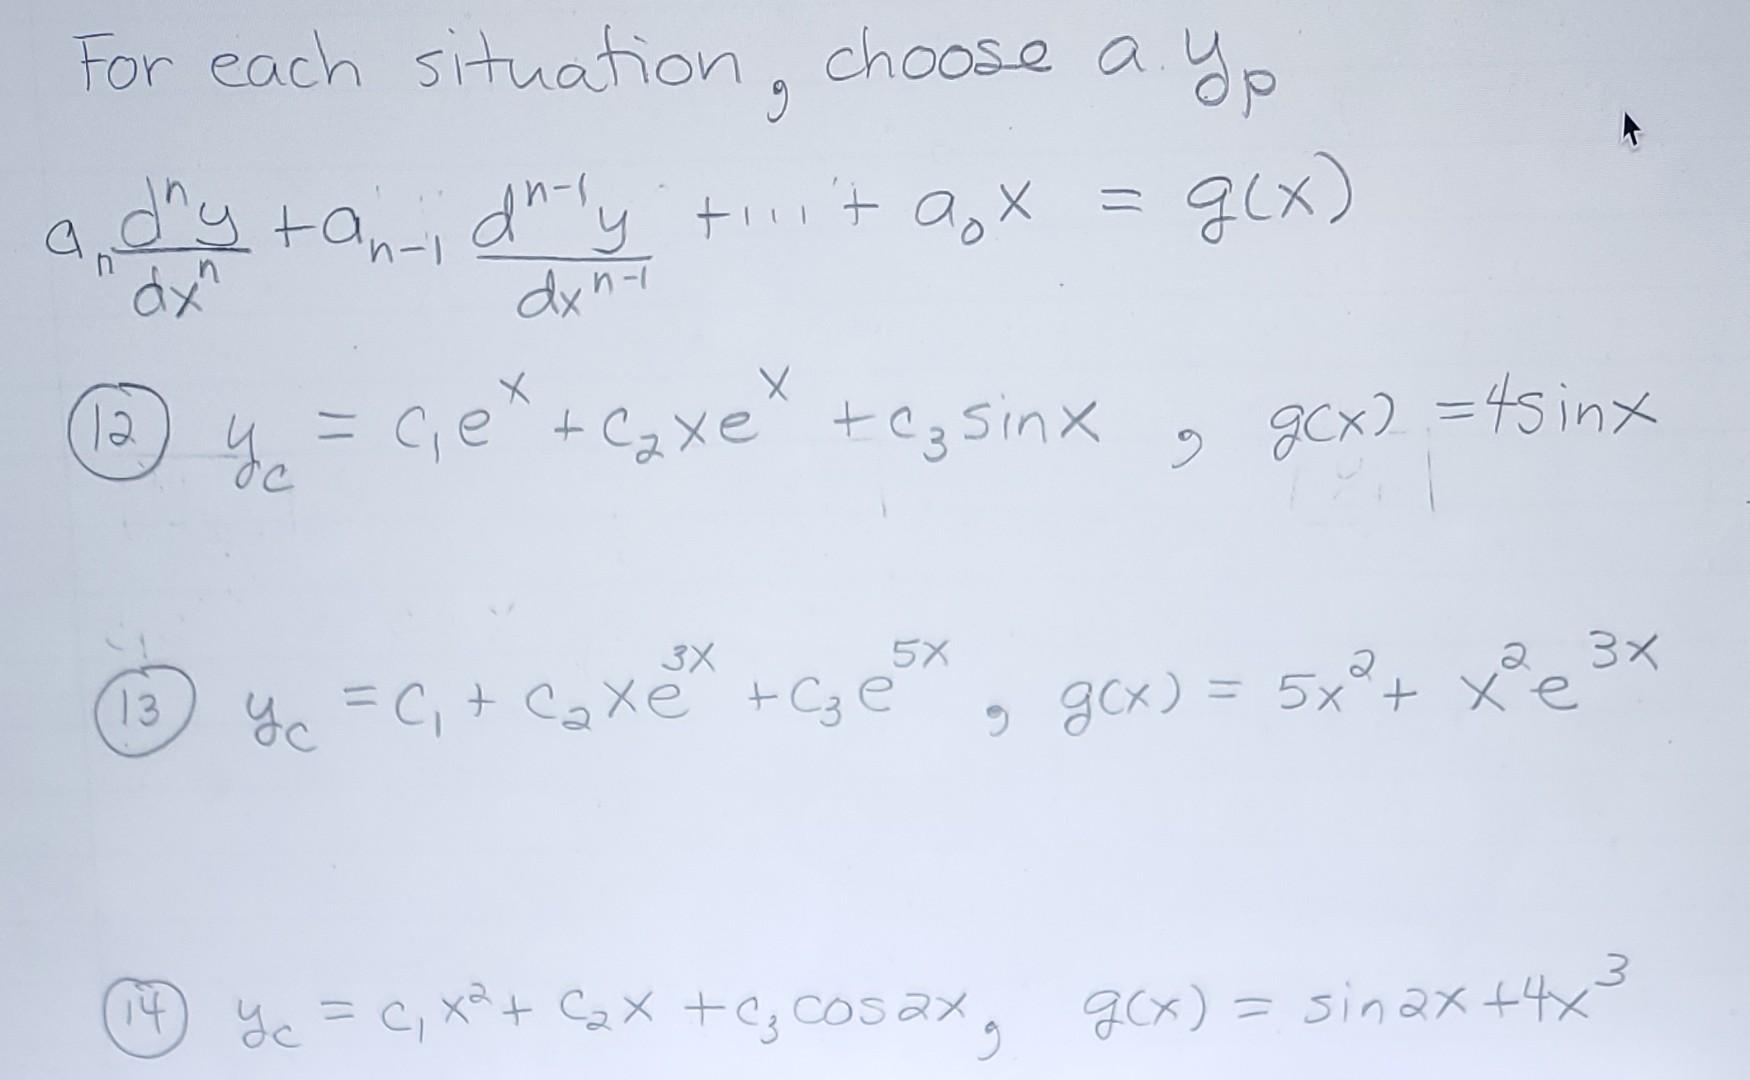 For each situation, choose a y_p
a_n d^n y/dx^n + a_{n-1} d^{n-1} y/dx^{n-1} + ... + a_0 x = g(x)
(12) y_c = c_1 e^x + c_2 x e^x + c_3 sin x , g(x) = 4 sin x
(13) y_c = c_1 + c_2 x e^{3x} + c_3 e^{5x} , g(x) = 5x^2 + x^2 e^{3x}
(14) y_c = c_1 x^2 + c_2 x + c_3 cos 2x , g(x) = sin 2x + 4x^3